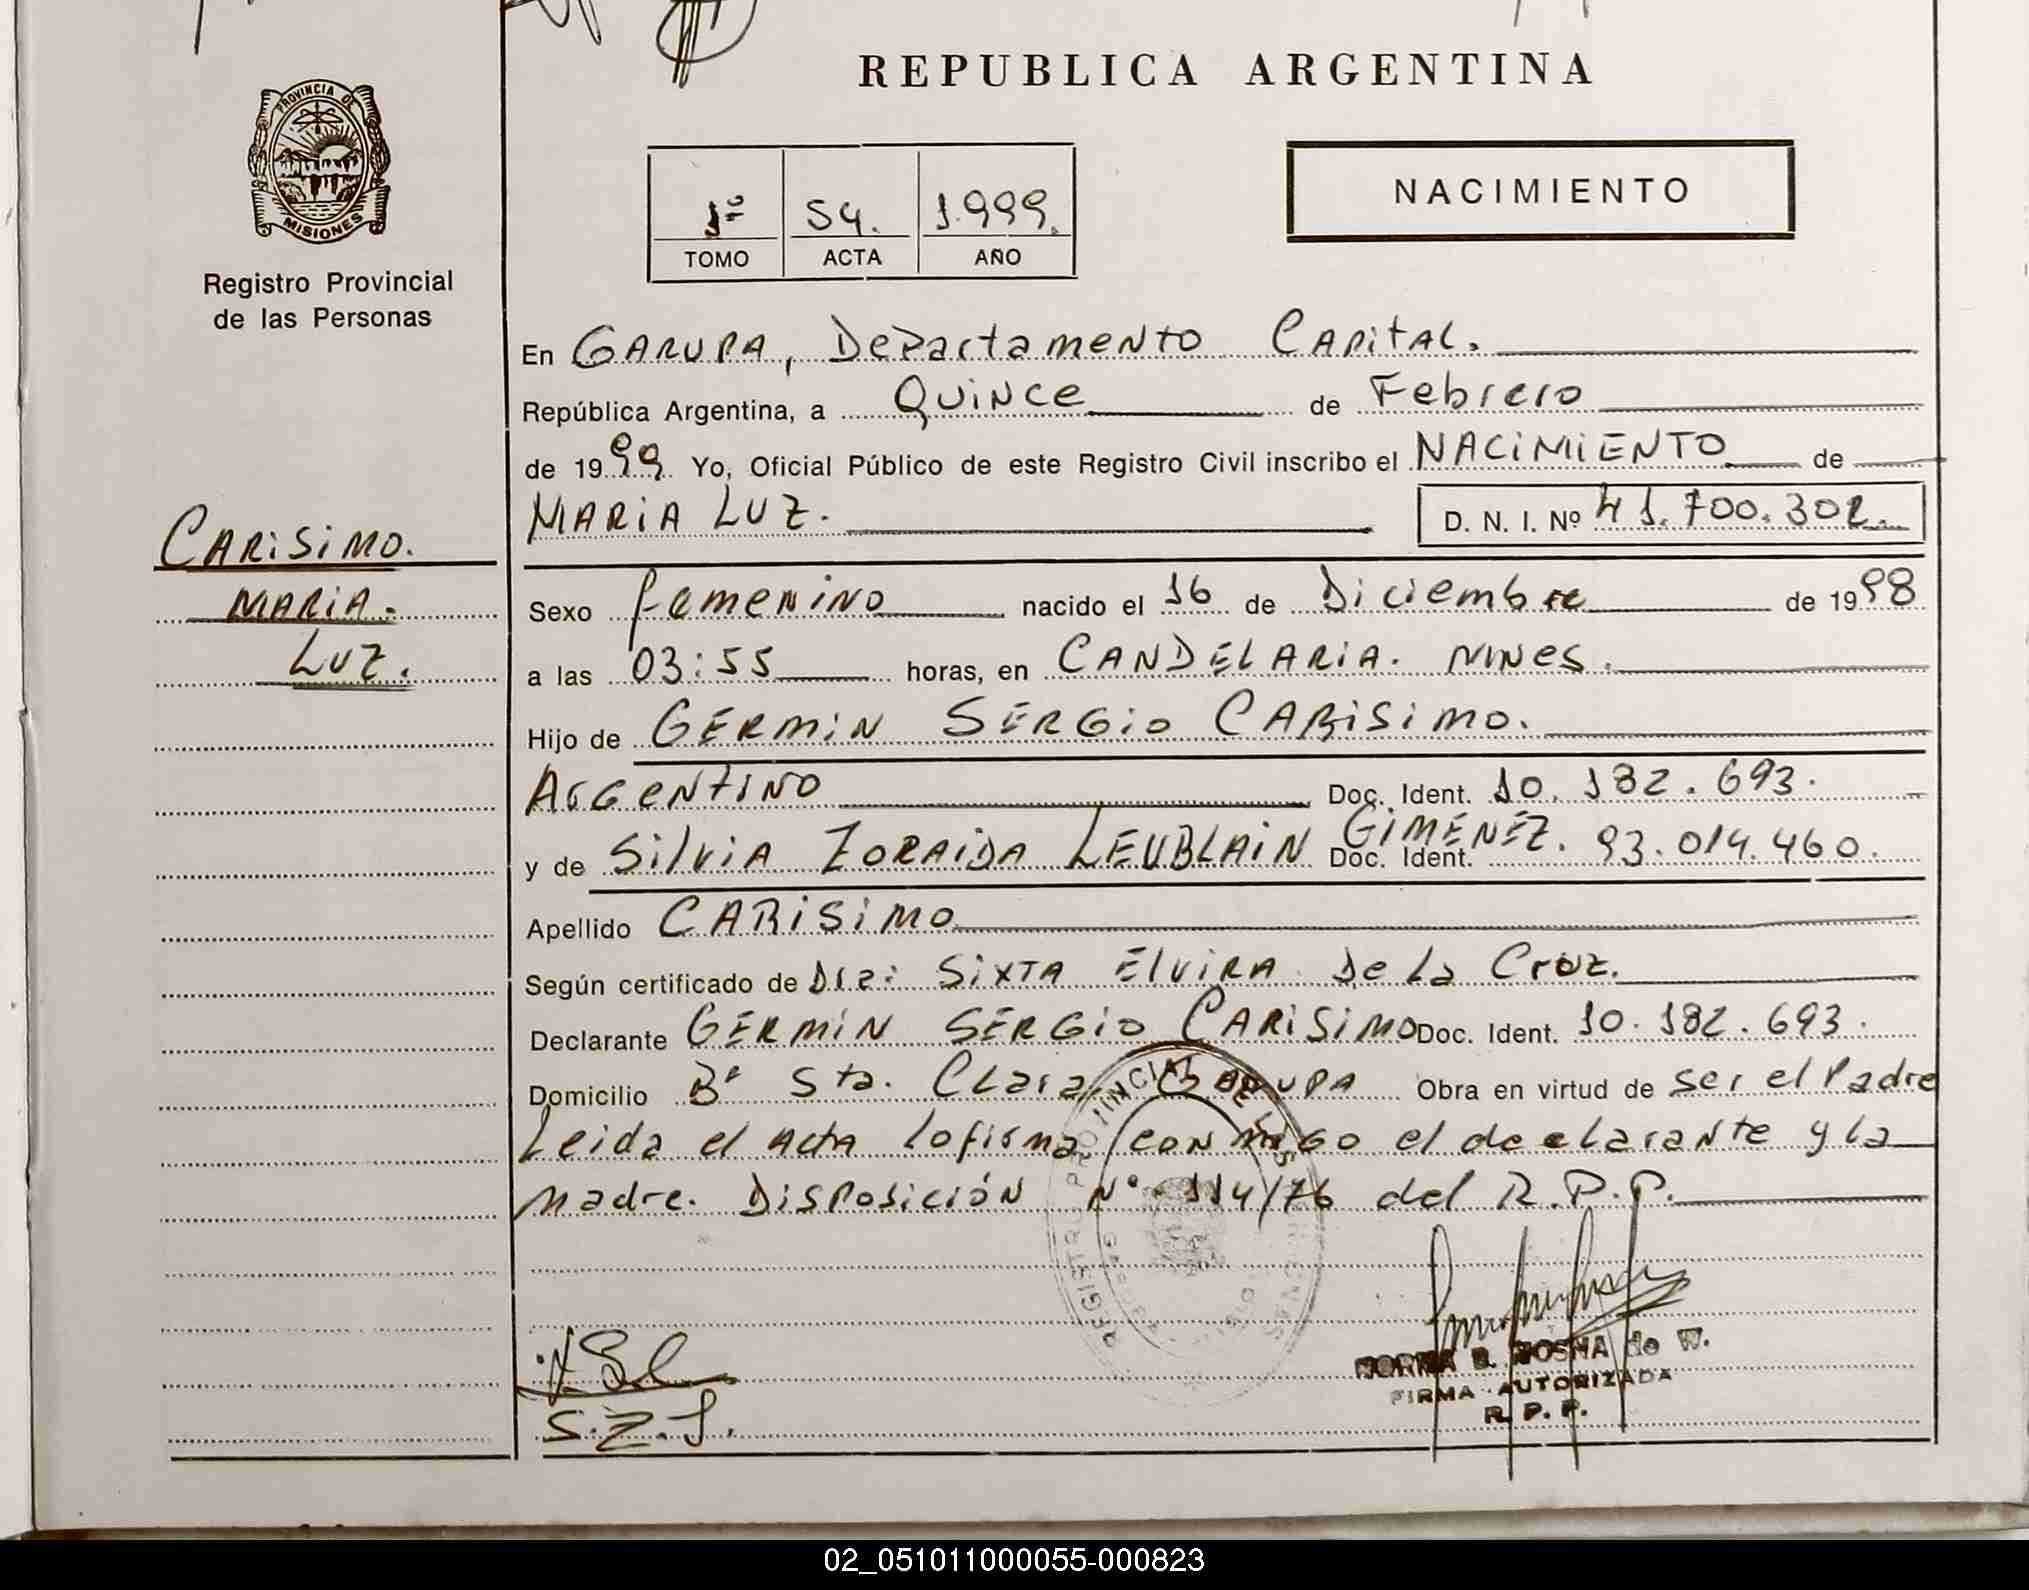 REPUBLICA ARGENTINA
PROVINCIA DE
MISIONES
Registro Provincial
de las Personas
1º 54. 1.999.
TOMO ACTA AÑO
NACIMIENTO
En GARUPA, Departamento Capital.
República Argentina, a Quince de Febrero
de 1999. Yo, Oficial Público de este Registro Civil inscribo el NACIMIENTO de
MARIA LUZ. D. N. I. Nº 41.700.302.
CARISIMO.
MARIA.
LUZ.
Sexo femenino nacido el 16 de Diciembre de 1998
a las 03:55 horas, en CANDELARIA. MNES.
Hijo de GERMIN SERGIO CARISIMO.
Argentino Doc. Ident. 10.182.693.
y de Silvia ZORAIDA LEUBLAIN GIMENEZ. Doc. Ident. 93.014.460.
Apellido CARISIMO
Según certificado de Dra: Sixta Elvira De La Cruz.
Declarante GERMIN SERGIO CARISIMO Doc. Ident. 10.182.693.
Domicilio Bº Sta. Clara GARUPA Obra en virtud de ser el Padre
Leida el Acta lo firma conmigo el declarante y la
madre. Disposición Nº 114/76 del R.P.P.
REGISTRO PROVINCIAL DE LAS PERSONAS
S.Z.L.
NORMA B. de W.
FIRMA AUTORIZADA
R. P. P.
02_051011000055-000823